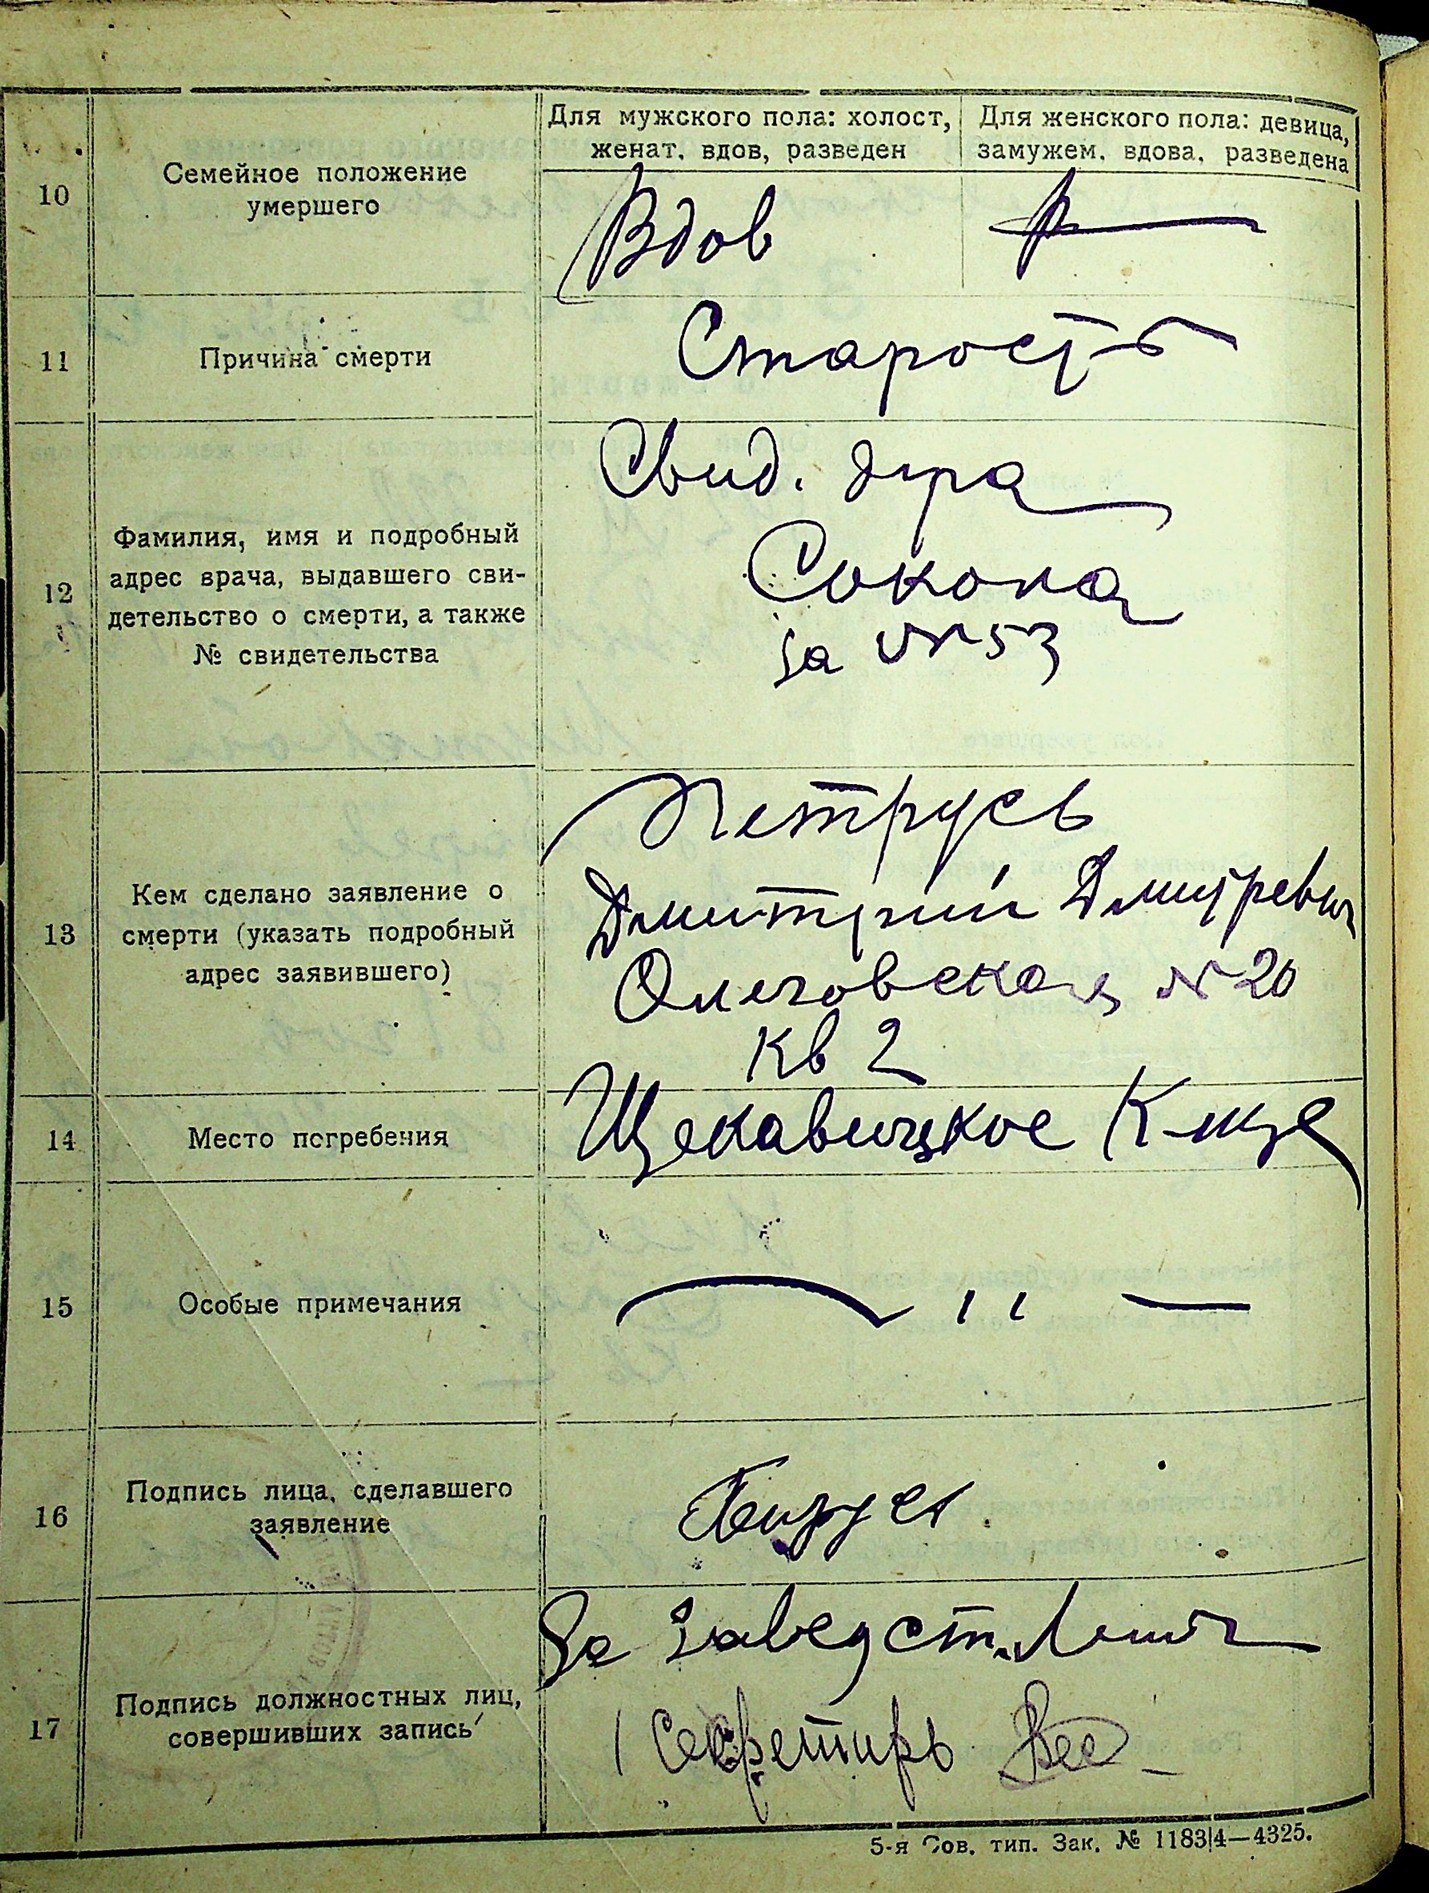 Для мужского пола: холост, женат, вдов, разведен
Для женского пола: девица, замужем, вдова, разведена
10
Семейное положение
умершего
Вдов
11
Причина смерти
Старость
12
Фамилия, имя и подробный
адрес врача, выдавшего сви-
детельство о смерти, а также
№ свидетельства
Свид. д-ра
Сокола
за № 53
13
Кем сделано заявление о
смерти (указать подробный
адрес заявившего)
Петрусь
Дмитрий Дмитревич
Олеговская № 20
кв 2
14
Место погребения
Щекавицкое Кл-ще
15
Особые примечания
— " —
16
Подпись лица, сделавшего
заявление
17
Подпись должностных лиц,
совершивших запись
За Завед ст.
Секретирь
5-я Сов. тип. Зак. № 1183|4—4325.